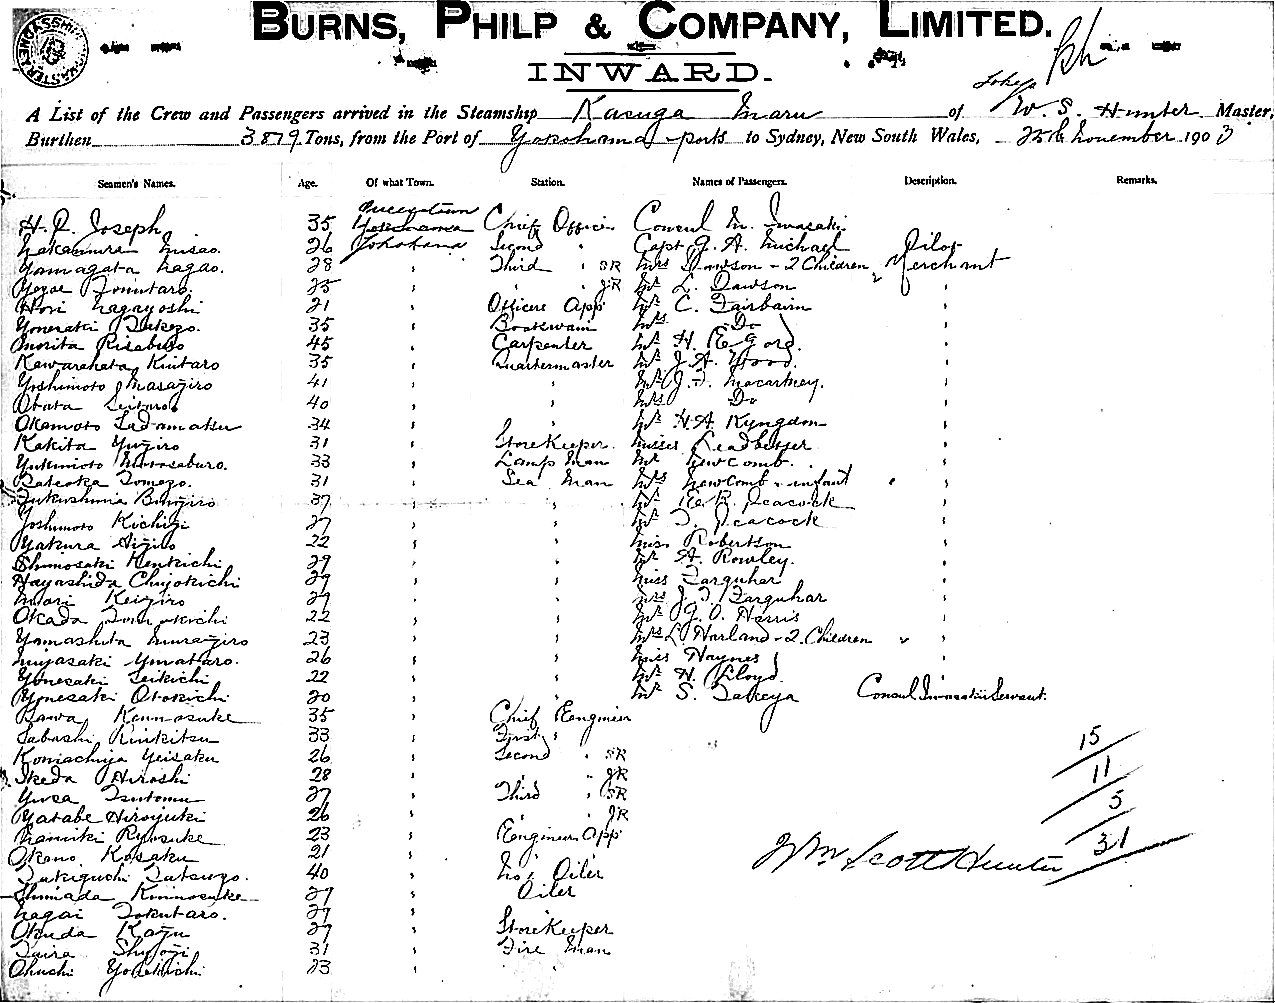 BURNS, PHILP & COMPANY, LIMITED.
INWARD.
A List of the Crew and Passengers arrived in the Steamship Kasuga Maru of W. S. Hunter Master,
Burthen 3879 Tons, from the Port of Yokohama ports to Sydney, New South Wales, 25th November 1903
Seamen's Names. Age. Of what Town. Station. Names of Passengers. Description. Remarks.
H. P. Joseph 35 Queenstown Yokohama Chief Officer Consul M. Iwasaki
Nakamura Misao. 26 Yokohama Second " Capt J. A. Michael Pilot
Yamagata Nagao. 28 " Third " SR Mrs Dawson - 2 Children " Merchant
25 " " " JR Mr L. Dawson "
Hori Nagayoshi 21 " Officers App Mr C. Fairbairn "
35 " Boatswain Mrs Do "
Morita Risaburo 45 " Carpenter Mr H. E. Gord. "
Kawarahata Kintaro 35 " Quartermaster Mr J. A. Wood. "
Yoshimoto Masajiro 41 " " Mr J. T. Macartney. "
Obata Seitaro 40 " " Mrs Do "
Okamoto Sadamatsu 34 " " Mr H. A. Kyngdon "
Kakita Yujiro 31 " Storekeeper. Misses Leadbetter "
Yukimoto Murosaburo. 33 " Lamp Man Mr Newcomb. "
Tomezo. 31 " Sea Man Mrs Newcomb - infant " "
Fukushima Bunjiro 37 " " Mr E. R. Peacock "
Yoshimoto Kichiji 27 " " Mr T. Peacock "
Yakura Aijiro 22 " " Miss Robertson "
Shimosaki Kenkichi 29 " " Mr A. Rowley. "
Hayashida Chiyokichi 29 " " Miss Farquhar "
Mori Keijiro 29 " " Mrs J. T. Farquhar "
Okada Tomokichi 22 " " Mr J. O. Harris "
Yamashita Murajiro 23 " " Mrs L. Harland - 2 Children " "
Miyasaki Yumataro. 26 " " Miss Haynes "
Yonesaki Seikichi 22 " " Mr H. Lloyd. "
Yonesaki Otokichi 20 " " Mr S. Takeya Consul Iwasaki's Servant.
Sawa Kumasuke 35 " Chief Engineer
Tabashi Rinkitsu 33 " First "
Komachiya Yeisaku 26 " Second " SR 15
Ikeda Hiroshi 28 " " " JR 11
Yusa Tsutomu 27 " Third " SR 5
Yatabe Hiroyuki 26 " " JR
Namiki Ryosuke 23 " Engineers App 31
Okano. Kosaku 21 " " Wm Scott Hunter
Takiguchi Tatsugo. 40 " No 1 Oiler
Shimada Kinnosuke 27 " Oiler
Nagai Tokutaro. 27 " "
Okuda Kaju 27 " Storekeeper
Taira Shyoji 31 " Fire Man
Ohuchi Yokichi 23 "